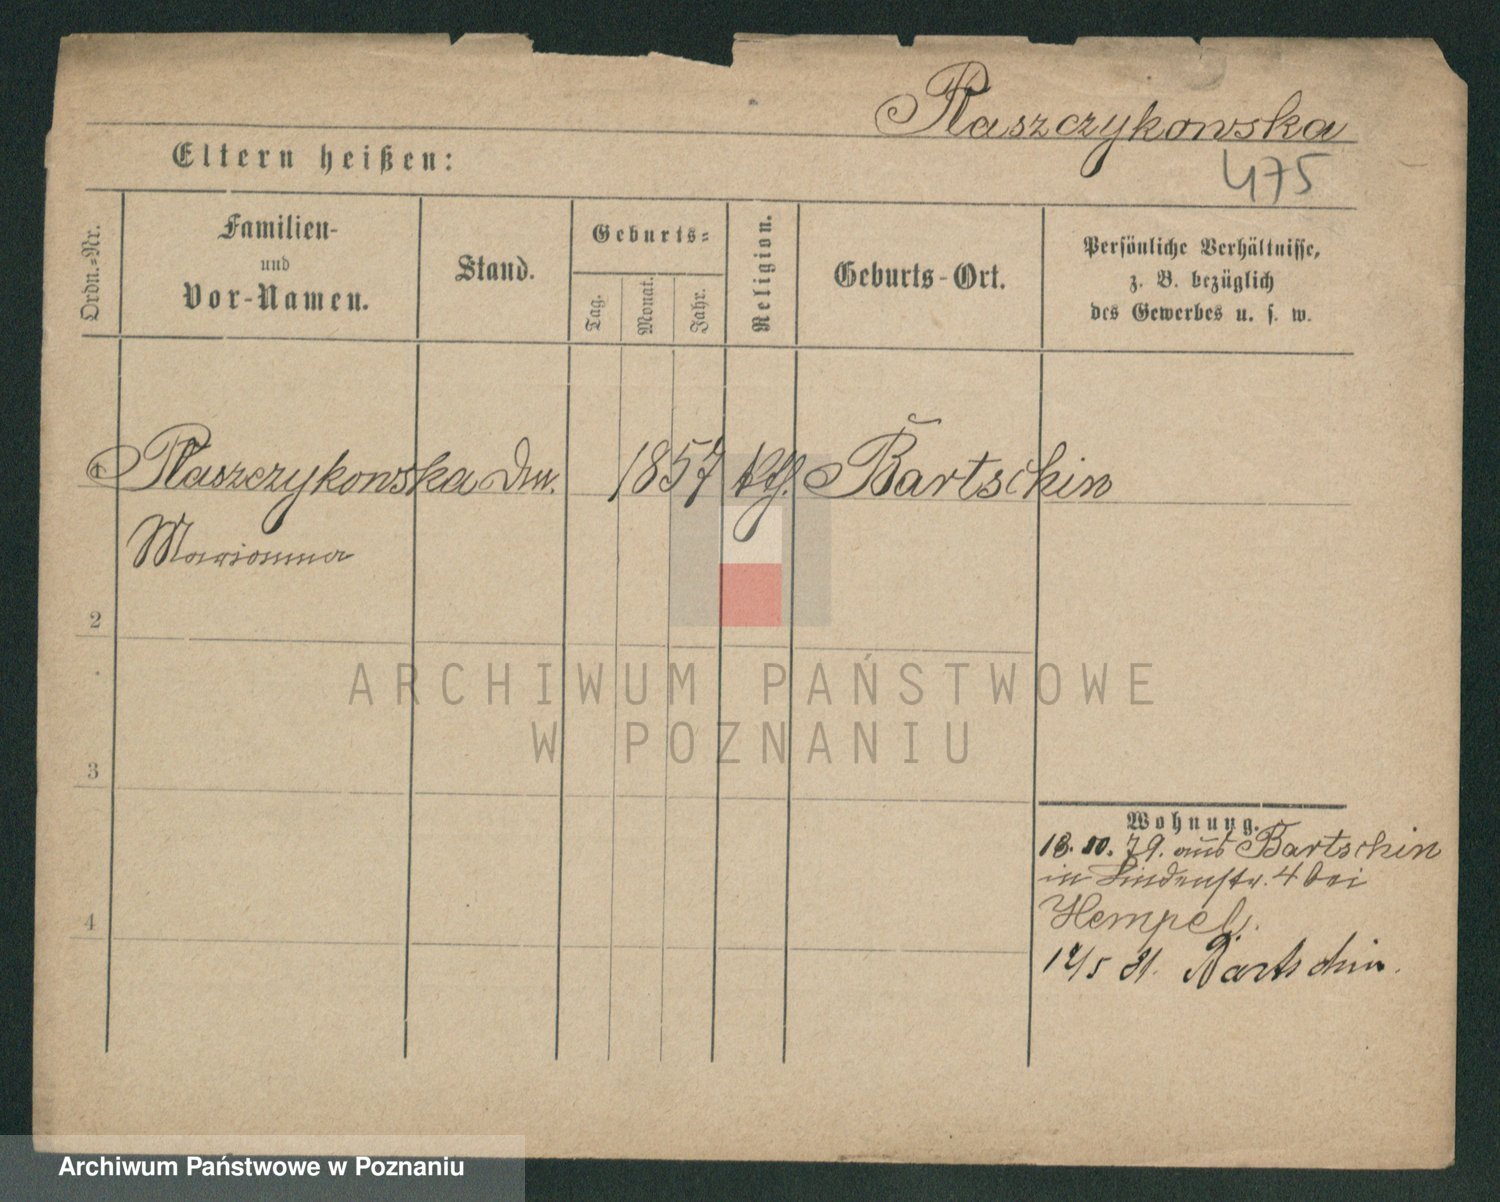 Płaszczykowska
475
Eltern heißen:
Ordn.-Nr.
Familien-
und
Vor-Namen.
Stand.
Geburts-
Tag.
Monat.
Jahr.
Religion.
Geburts-Ort.
Persönliche Verhältnisse,
z. B. bezüglich
des Gewerbes u. s. w.
1 Płaszczykowska 1857 kth. Bartschin
Marianna
2
3
4
Wohnung.
13. 10. 79. aus Bartschin
in Lindenstr. 4 bei
Hempel.
12/5 81. Bartschin.
ARCHIWUM PAŃSTWOWE
W POZNANIU
Archiwum Państwowe w Poznaniu